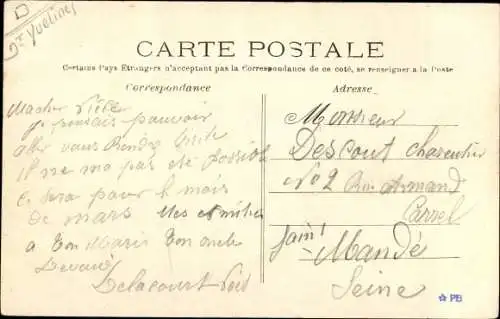 Dt Yvelines
CARTE POSTALE
Certains Pays Étrangers n'acceptant pas la Correspondance de ce coté, se renseigner à la Poste
Correspondance
Adresse
Ma cher
je pensais pouvoir
aller vous Rendre visite
il ne ma pas eté possible
ce sera pour le mois
de mars Mes amitiés
a ton Maris ton oncle
Devoué
Delacourt
Monsieur
Descout charentier
No 2 Rue armand
Carrel
Saint
Mandé
Seine
PB